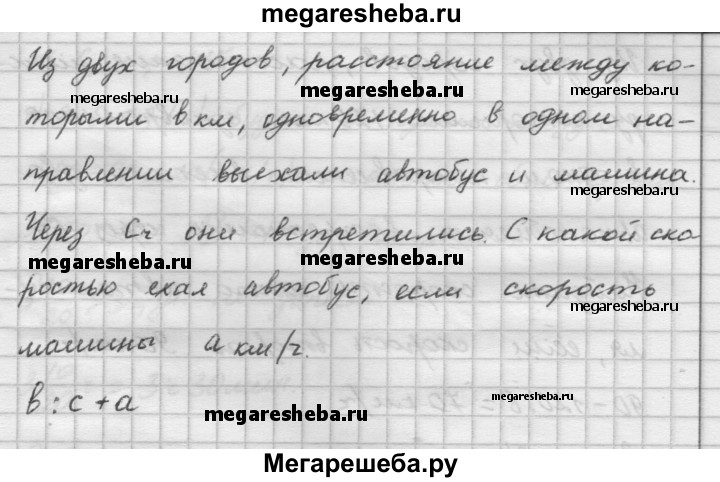 megaresheba.ru
Из двух городов, расстояние между ко-
megaresheba.ru megaresheba.ru megaresheba.ru
торыми в км, одновременно в одном на-
правлении выехали автобус и машина.
megaresheba.ru
Через С ч они встретились. С какой ско-
megaresheba.ru megaresheba.ru
ростью ехал автобус, если скорость
megaresheba.ru
машины а км/ч.
в : с + а
megaresheba.ru
Мегарешеба.ру